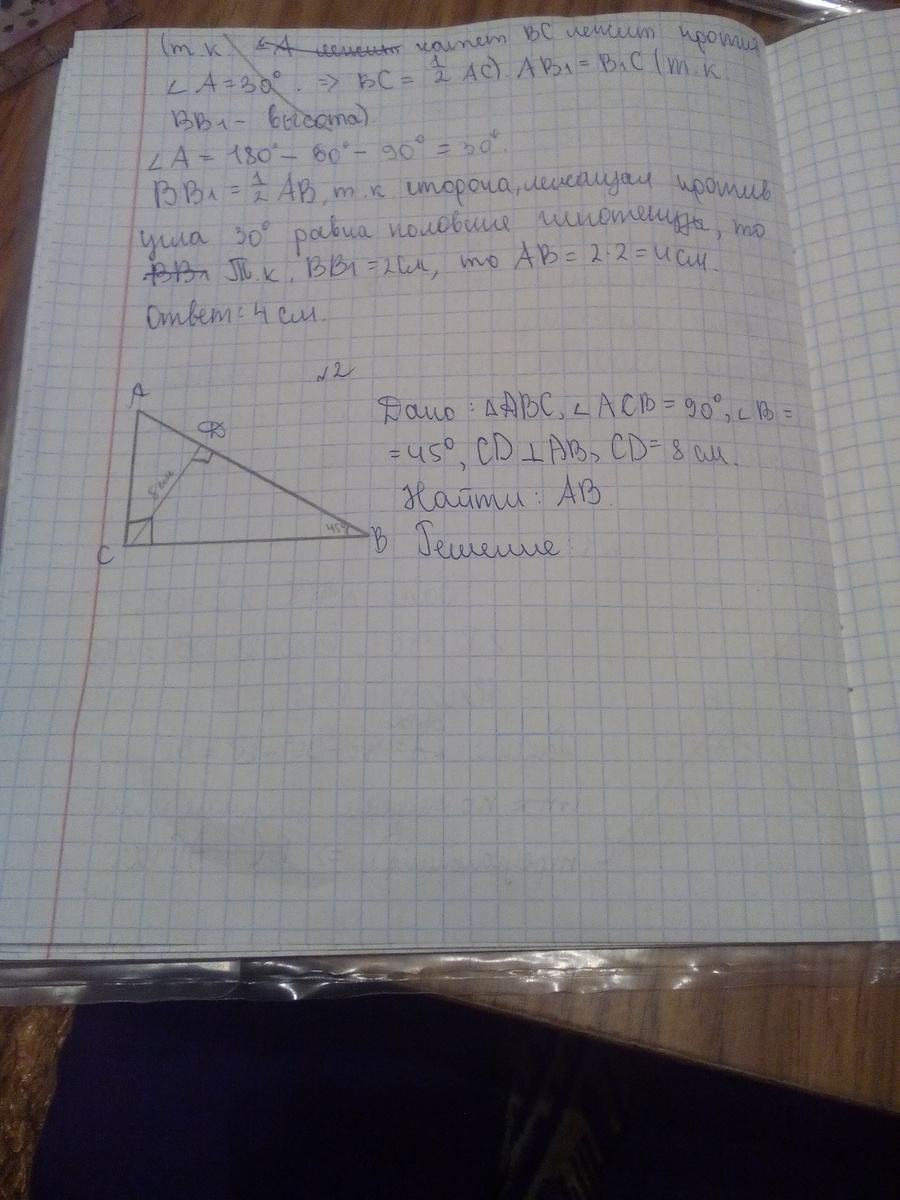 (т.к. ∠A лежит катет BC лежит против
∠A = 30° . => BC = 1/2 AC). AB1 = B1C (т.к.
BB1 - высота)
∠A = 180° - 60° - 90° = 30°.
BB1 = 1/2 AB, т.к. сторона, лежащая против
угла 30° равна половине гипотенузы, то
BB1 Т.к. BB1 = 2см, то AB = 2·2 = 4 см.
Ответ: 4 см.
№2
A
D
8 см
45°
C
B
Дано: △ABC, ∠ACB = 90°, ∠B =
= 45°, CD ⊥ AB, CD = 8 см.
Найти: AB.
Решение: